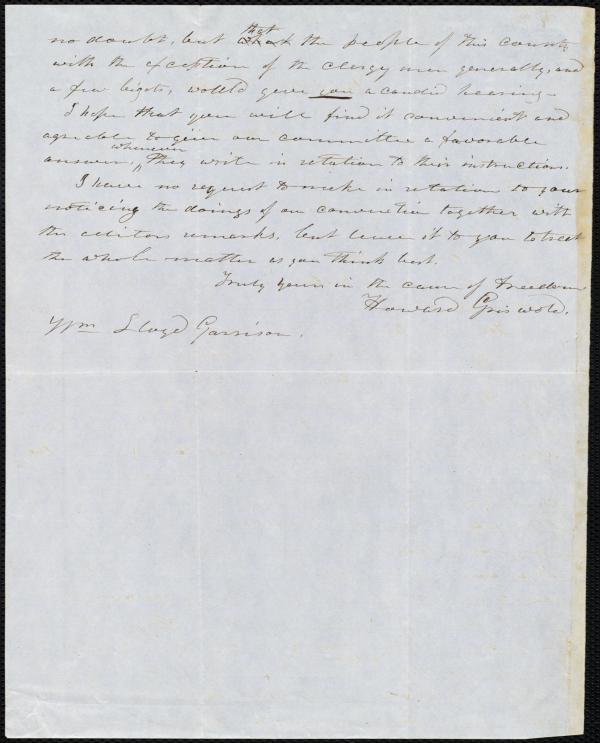 no doubt, but that the people of this county
with the exception of the clergy men generally, and
a few bigots, would give you a candid hearing-
I hope that you will find it convenient and
agreeable to give our committee a favorable
answer, whenever they write in relation to their instructions.
I have no request to make in relation to your
noticing the doings of our convention together with
the editors remarks, but leave it to you to treat
the whole matter as you think best.
Truly yours in the cause of Freedom
Howard Griswold.
Wm Lloyd Garrison.